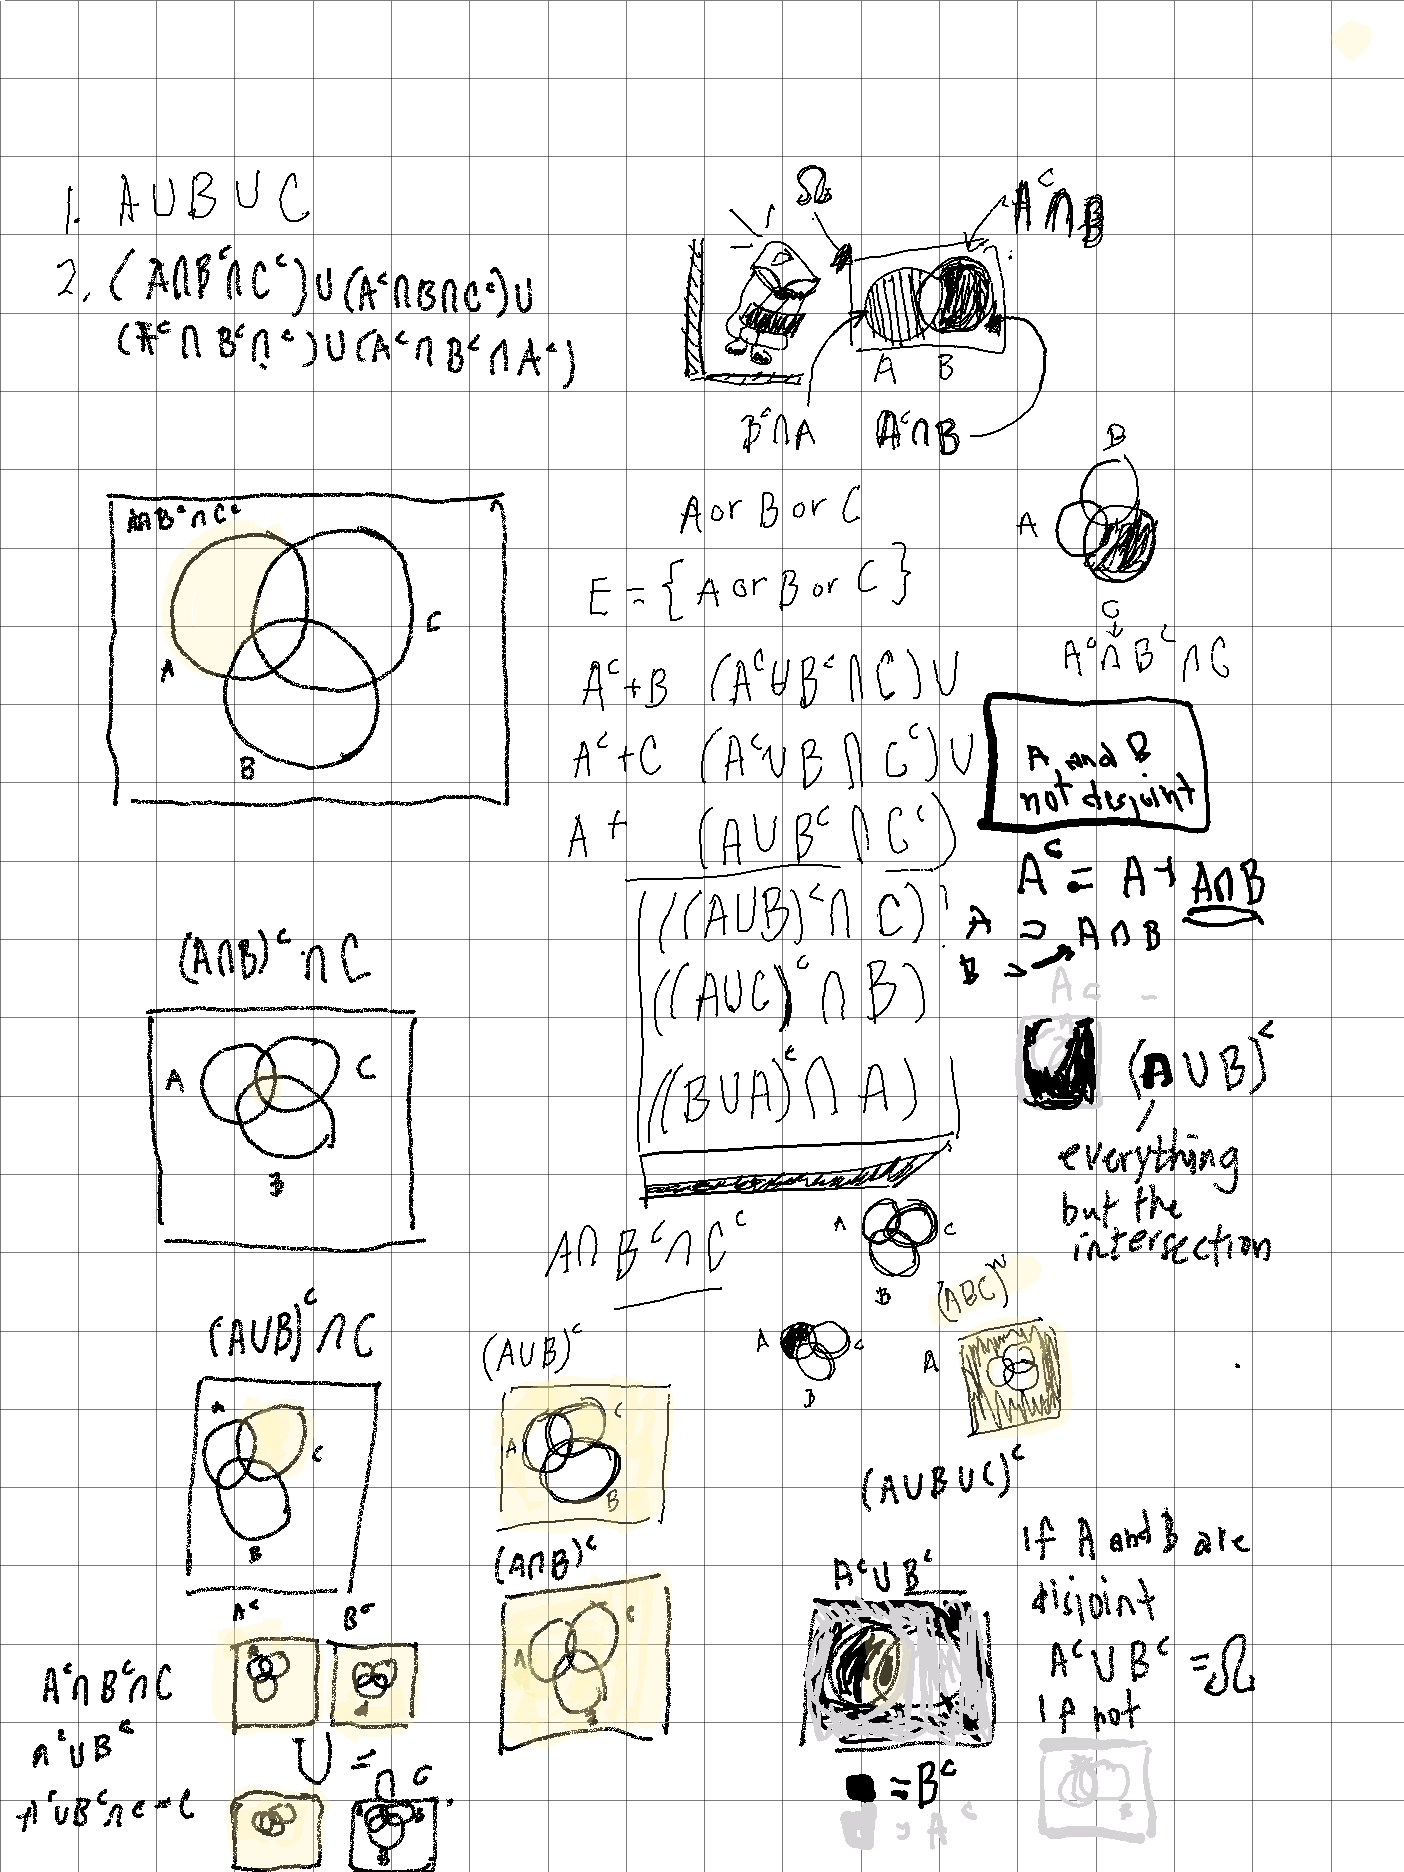 1. A∪B∪C
2. (A∩Bᶜ∩Cᶜ)∪(Aᶜ∩B∩Cᶜ)∪
(Aᶜ∩Bᶜ∩ ᶜ)∪(Aᶜ∩Bᶜ∩Aᶜ)
Ω
Aᶜ∩B
A B
Bᶜ∩A Aᶜ∩B
A∩Bᶜ∩Cᶜ
A
C
B
A or B or C
E = {A or B or C}
Aᶜ+B (Aᶜ∪Bᶜ∩C)∪
Aᶜ+C (Aᶜ∪B∩Cᶜ)∪
A + (A∪Bᶜ∩Cᶜ)
((A∪B)ᶜ∩C)
((A∪C)ᶜ∩B)
((B∪A)ᶜ∩A)
B
A
C
Aᶜ∩Bᶜ∩C
A and B
not disjoint
Aᶜ = A + A∩B
A ⊃ A∩B
B ⊃
(A∪B)ᶜ
everything
but the
intersection
(A∩B)ᶜ∩C
A
C
B
A∩Bᶜ∩Cᶜ
A C
B
(ABC)ᶜ
A C
B
A
(A∪B∪C)ᶜ
(A∪B)ᶜ∩C
A
C
B
(A∪B)ᶜ
C
A
B
(A∩B)ᶜ
C
A
B
Aᶜ∪Bᶜ
■ = Bᶜ
Aᶜ
If A and B are
disjoint
Aᶜ∪Bᶜ = Ω
If not
Aᶜ Bᶜ
Aᶜ∩Bᶜ∩C
ᶜ∪Bᶜ
∪ =
∩ C
Aᶜ∪Bᶜ∩C = C
B